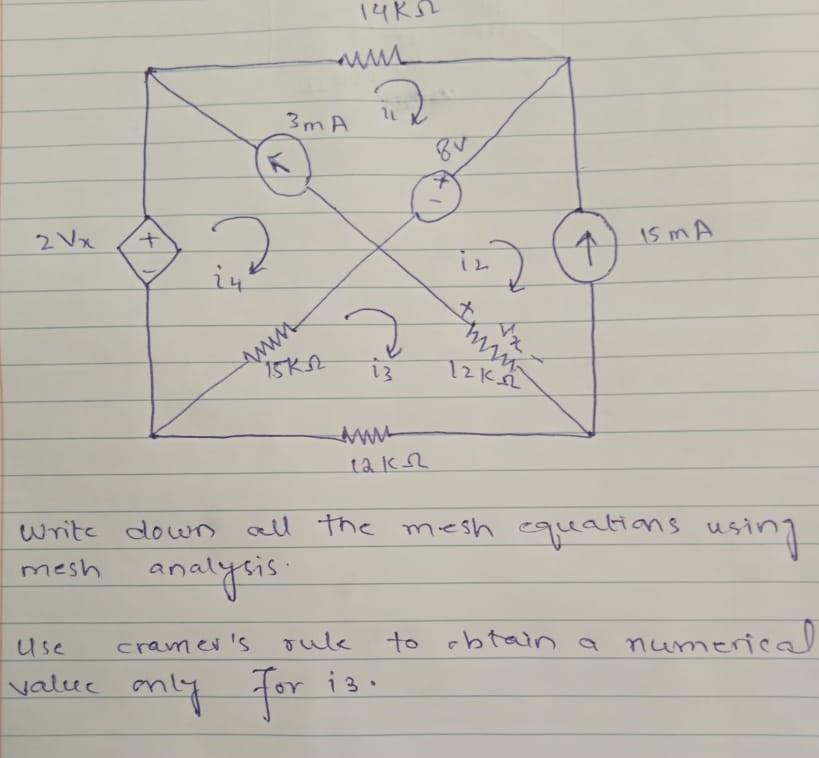 14KΩ
3mA
i1
8V
+
-
2Vx
+
-
i4
i2
15mA
+
Vx
-
15KΩ
i3
12KΩ
12KΩ
Write down all the mesh equations using
mesh analysis.
Use cramer's rule to obtain a numerical
value only for i3.